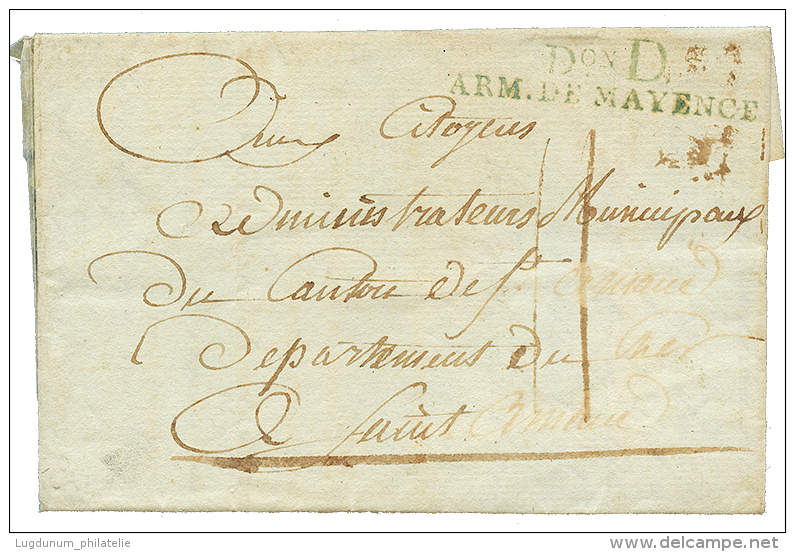 Don D
ARM. DE MAYENCE
Aux Citoyens
Administrateurs Municipaux
Du Canton de St. Amand
Departement du Cher
A Saint Amand
Lugdunum_philatelie
delcampe.net